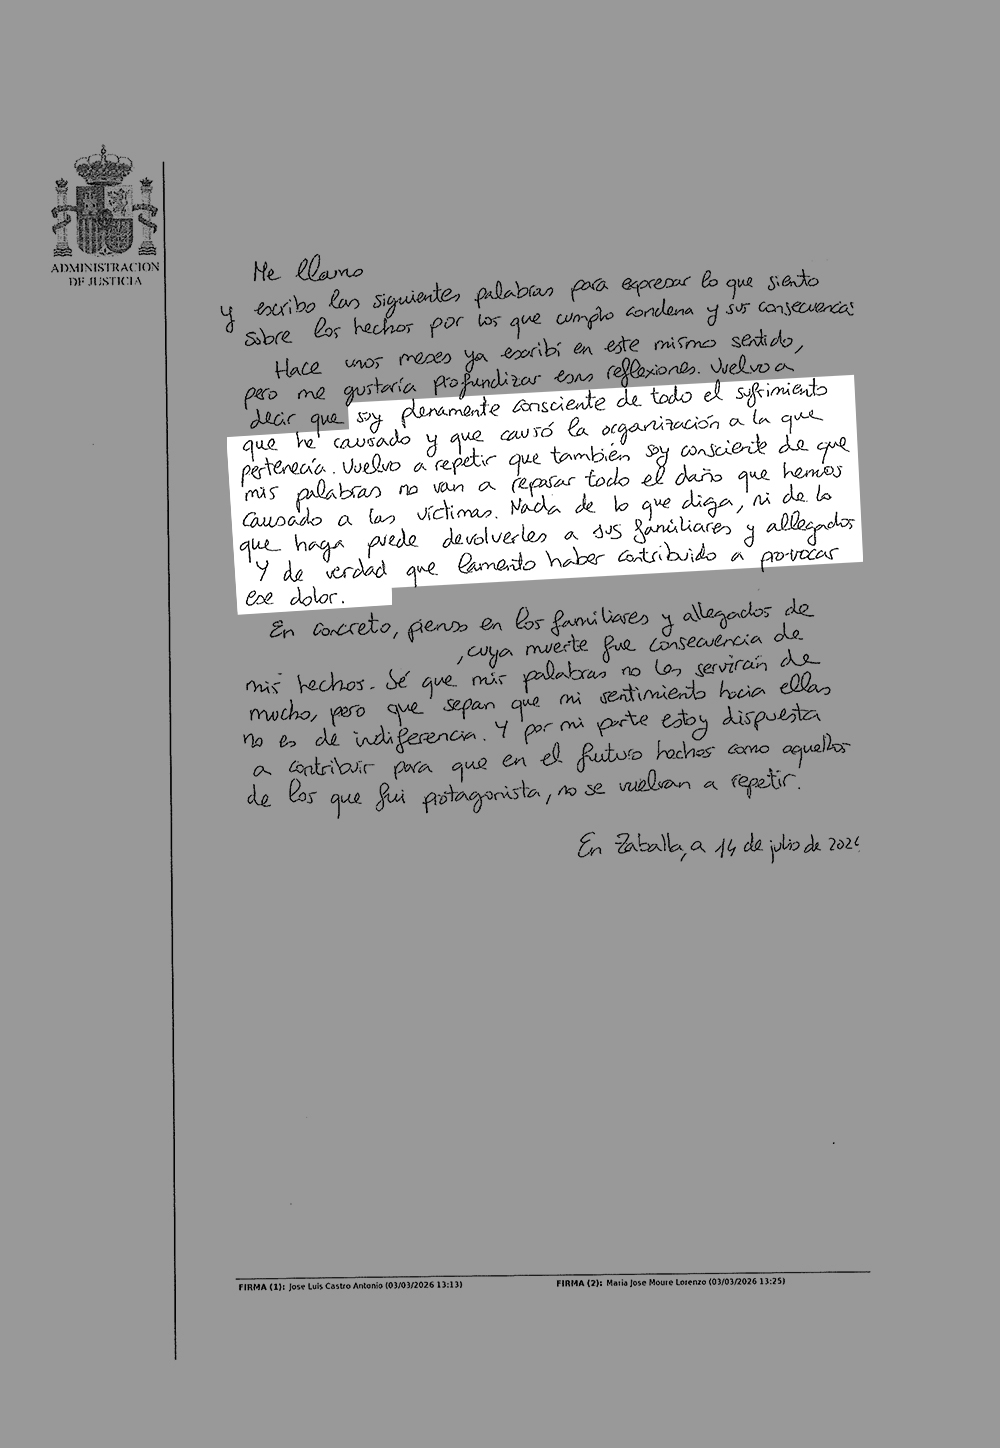 ADMINISTRACION
DE JUSTICIA
Me llamo
y escribo las siguientes palabras para expresar lo que siento
sobre los hechos por los que cumplo condena y sus consecuencias
Hace unos meses ya escribí en este mismo sentido,
pero me gustaría profundizar esas reflexiones. Vuelvo a
decir que soy plenamente consciente de todo el sufrimiento
que he causado y que causó la organización a la que
pertenecía. Vuelvo a repetir que también soy consciente de que
mis palabras no van a reparar todo el daño que hemos
causado a las víctimas. Nada de lo que diga, ni de lo
que haga puede devolverles a sus familiares y allegados
Y de verdad que lamento haber contribuido a provocar
ese dolor.
En concreto, pienso en los familiares y allegados de
, cuya muerte fue consecuencia de
mis hechos. Sé que mis palabras no les servirán de
mucho, pero que sepan que mi sentimiento hacia ellas
no es de indiferencia. Y por mi parte estoy dispuesta
a contribuir para que en el futuro hechos como aquellos
de los que fui protagonista, no se vuelvan a repetir.
En Zaballa, a 14 de julio de
FIRMA (1): Jose Luis Castro Antonio (03/03/2026 13:13)
FIRMA (2): Maria Jose Moure Lorenzo (03/03/2026 13:25)